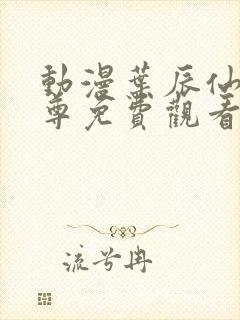 動漫葉辰仙
尊免費觀看
流兮冉